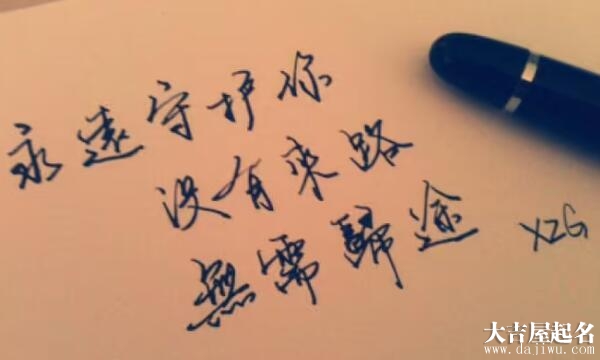 永遠守护你
没有来路
無需歸途 XZG
大吉屋起名
www.dajiwu.com